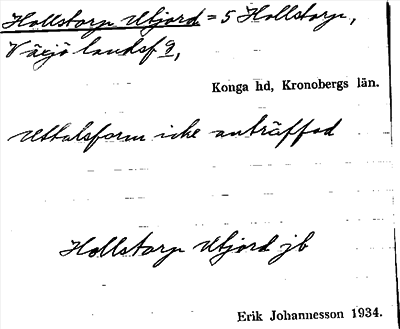 Hollstorp Utjord = 5 Hollstorp,
Växjö landsf g,
Konga hd, Kronobergs län.
Uttalsform icke anträffad
Hollstorp Utjord jb
Erik Johannesson 1934.